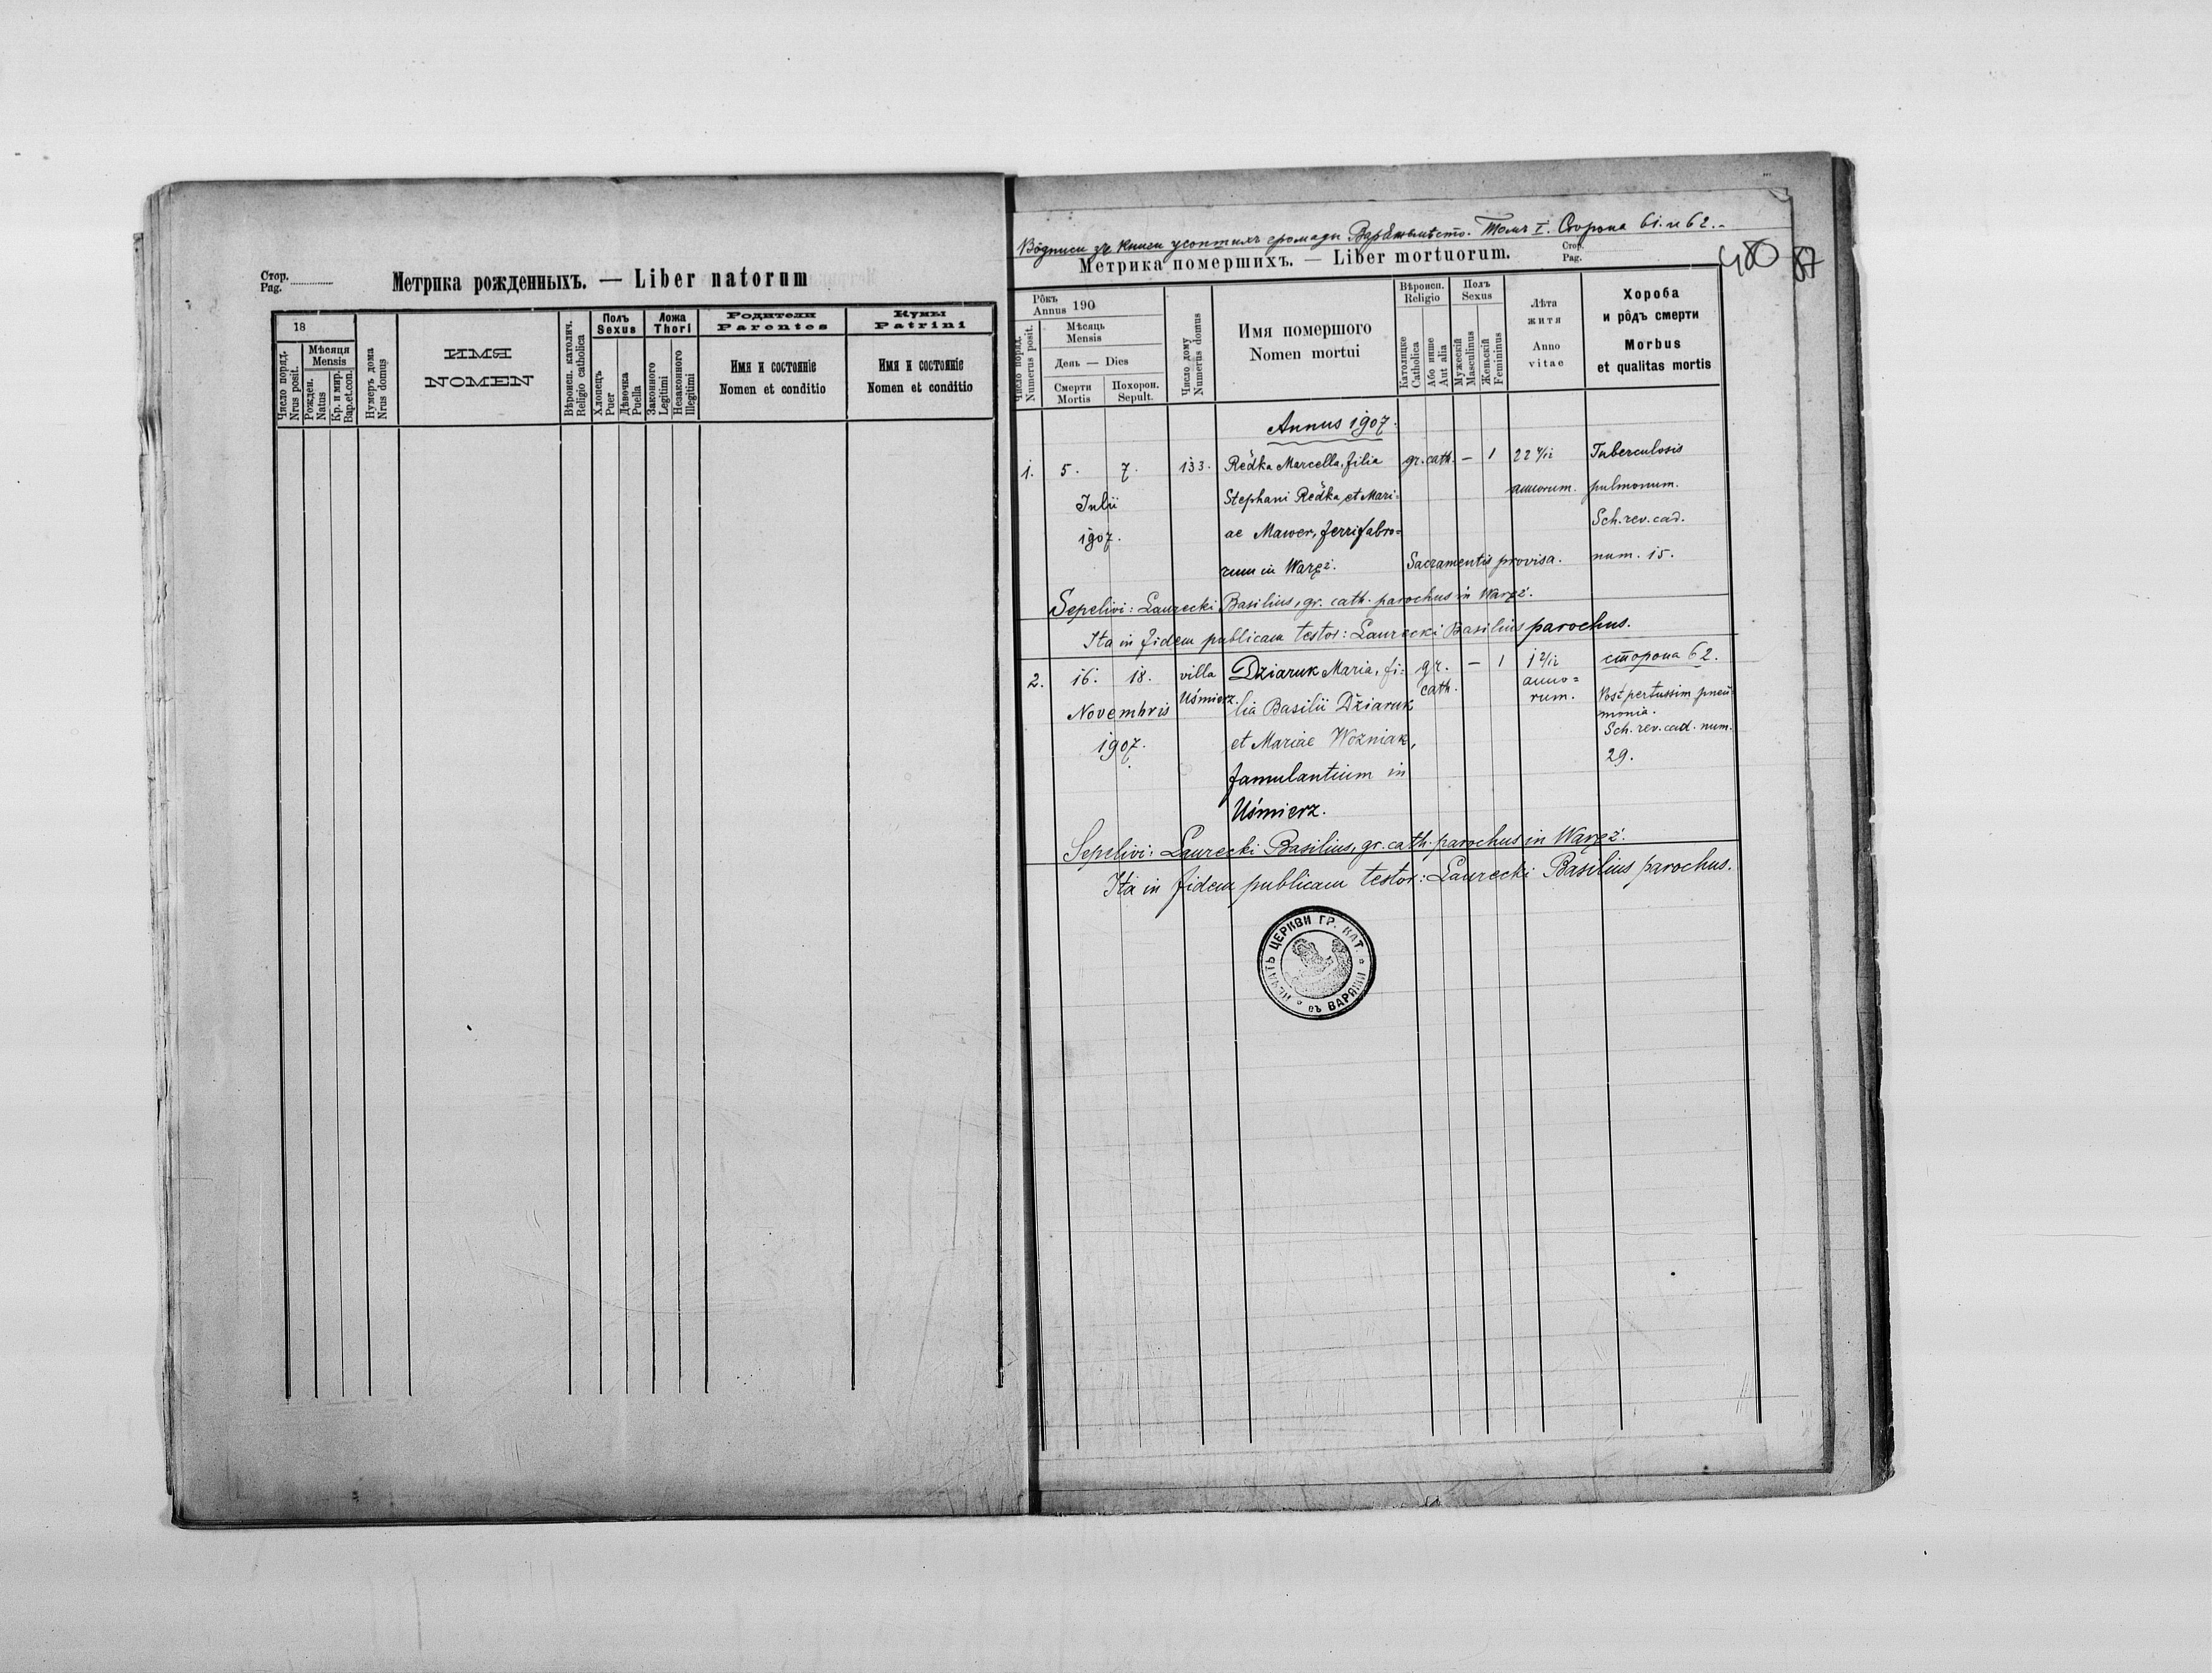 Стор.
Pag.
Метрика рожденныхъ. — Liber natorum
18
Число поряд.
Nrus posit.
Мѣсяця
Mensis
Рожден.
Natus
Кр. и мир.
Bap.et.con.
Нумеръ дома
Nrus domus
ИМЯ
NOMEN
Вѣроисп. католич.
Religio catholica
Полъ
Sexus
Хлопецъ
Puer
Дѣвочка
Puella
Ложа
Thori
Законного
Legitimi
Незаконного
Illegitimi
Родители
Parentes
Имя и состоянíе
Nomen et conditio
Кумы
Patrini
Имя и состоянíе
Nomen et conditio
Вôдписи зъ книги усопшихъ громады Варяжмѣсто. Томъ I. Сторона 61. и 62.-
Метрика помершихъ. — Liber mortuorum.
Стор.
Pag.
480
87
Рôкъ
Annus 190
Число поряд.
Numerus posit.
Мѣсяць
Mensis
День — Dies
Смерти
Mortis
Похорон.
Sepult.
Число дому
Numerus domus
Имя помершого
Nomen mortui
Вѣроисп.
Religio
Католицке
Catholica
Або инше
Aut alia
Полъ
Sexus
Мужескій
Masculinus
Женьскій
Femininus
Лѣта
житя
Anno
vitae
Хороба
и рôдъ смерти
Morbus
et qualitas mortis
Annus 1907.
1. 5. 7. 133. Redka Marcella, filia gr. cath. — 1 22 4/12 Tuberculosis
Julii Stephani Redka et Mari= annorum. pulmonum.
1907. ae Mawer, ferrifabro= Sch. rev. cad.
rum in Waręż. Sacramentis provisa. num. 15.
Sepelivi: Laurecki Basilius, gr. cath. parochus in Waręż.
Ita in fidem publicam testor: Laurecki Basilius parochus.
2. 16. 18. villa Dziaruk Maria, fi= gr. — 1 1 2/12 сторона 62.
Uśmierz. cath. anno=
rum. Post pertussim pneu=
monia.
Novembris lia Basilii Dziaruk Sch. rev. cad. num.
1907. et Mariae Wozniak, 29.
famulantium in
Uśmierz.
Sepelivi: Laurecki Basilius, gr. cath. parochus in Waręż.
Ita in fidem publicam testor: Laurecki Basilius parochus.
ПЕЧАТЬ ЦЕРКВИ ГР. КАТ.
въ ВАРЯЖИ